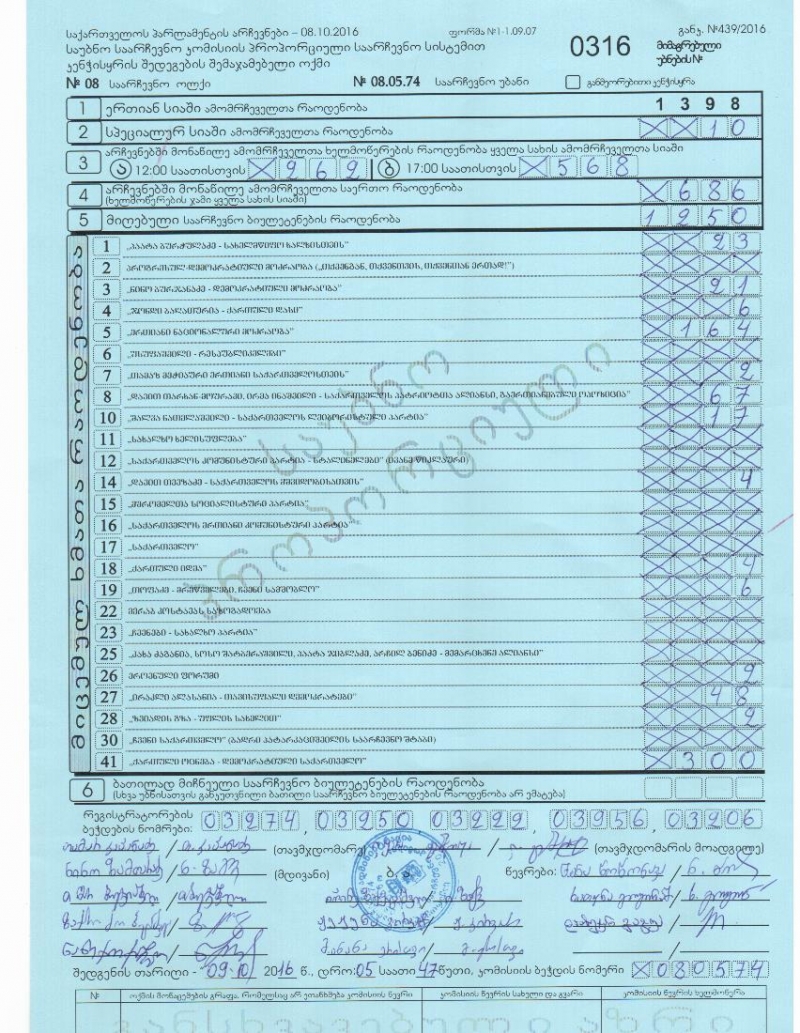 საქართველოს პარლამენტის არჩევნები – 08.10.2016 ფორმა №1-1.09.07 განკ. №439/2016
საუბნო საარჩევნო კომისიის პროპორციული საარჩევნო სისტემით 0316 მიმაგრებული
კენჭისყრის შედეგების შემაჯამებელი ოქმი უბნების №
№ 08 საარჩევნო ოლქი № 08.05.74 საარჩევნო უბანი განმეორებითი კენჭისყრა
1 ერთიან სიაში ამომრჩეველთა რაოდენობა 1 3 9 8
2 სპეციალურ სიაში ამომრჩეველთა რაოდენობა X X 1 0
3 არჩევნებში მონაწილე ამომრჩეველთა ხელმოწერების რაოდენობა ყველა სახის ამომრჩეველთა სიაში
ა 12:00 საათისთვის X 2 6 2 ბ 17:00 საათისთვის X 5 6 8
4 არჩევნებში მონაწილე ამომრჩეველთა საერთო რაოდენობა X 6 8 6
(ხელმოწერების ჯამი ყველა სახის სიაში)
5 მიღებული საარჩევნო ბიულეტენების რაოდენობა 1 2 5 0
მიცემულ ხმათა რაოდენობა
1 „პაატა ბურჭულაძე - სახელმწიფო ხალხისთვის“ X X 2 3
2 პროგრესულ-დემოკრატიული მოძრაობა („თქვენგან, თქვენთვის, თქვენთან ერთად!“) X X X X
3 „ნინო ბურჯანაძე - დემოკრატიული მოძრაობა“ X X 2 1
4 „ჯონდი ბაღათურია - ქართული დასი“ X X X 6
5 „ერთიანი ნაციონალური მოძრაობა“ X 1 6 4
6 „უსუფაშვილი - რესპუბლიკელები“ X X X X
7 „თამაზ მეჭიაური ერთიანი საქართველოსთვის“ X X X 2
8 „დავით თარხან-მოურავი, ირმა ინაშვილი - საქართველოს პატრიოტთა ალიანსი, გაერთიანებული ოპოზიცია“ X X 6 7
10 „შალვა ნათელაშვილი - საქართველოს ლეიბორისტული პარტია“ X X 1 7
11 „სახალხო ხელისუფლება“ X X X X
12 „საქართველოს კომუნისტური პარტია - სტალინელები“ (ივანე წიკლაური) X X X X
14 „დავით თევზაძე - საქართველოს მშვიდობისათვის“ X X X 4
15 „მშრომელთა სოციალისტური პარტია“ X X X X
16 „საქართველოს ერთიანი კომუნისტური პარტია“ X X X X
17 „საქართველო“ X X X X
18 „ქართული იდეა“ X X X 4
19 „თოფაძე - მრეწველები, ჩვენი სამშობლო“ X X X 6
22 მერაბ კოსტავას საზოგადოება X X X X
23 „ჩვენები - სახალხო პარტია“ X X X X
25 „კახა ძაგანია, სოსო შატბერაშვილი, პაატა ჯიბლაძე, არჩილ ბენიძე - მემარცხენე ალიანსი“ X X X X
26 ეროვნული ფორუმი X X X 2
27 „ირაკლი ალასანია - თავისუფალი დემოკრატები“ X X 4 8
28 „ზვიადის გზა - უფლის სახელით“ X X X 2
30 „ჩვენი საქართველო“ (ბადრი პატარკაციშვილის საარჩევნო შტაბი) X X X X
41 „ქართული ოცნება - დემოკრატიული საქართველო“ X 3 0 0
საუბნო
პროპორციული
6 ბათილად მიჩნეული საარჩევნო ბიულეტენების რაოდენობა
(სხვა უბნისათვის განკუთვნილი ბათილი საარჩევნო ბიულეტენების რაოდენობა არ ემატება)
რეგისტრატორების
ბეჭდების ნომრები: 03274, 03250, 03222, 03256, 03206
(თავმჯდომარე) (თავმჯდომარის მოადგილე)
(მდივანი) ბ.ა. წევრები:
შედგენის თარიღი - 09.10. 2016 წ., დრო: 05 საათი 47 წუთი, კომისიის ბეჭდის ნომერი X 080574
№ ოქმის მონაცემების გრაფა, რომელსაც არ ეთანხმება კომისიის წევრი კომისიის წევრის სახელი და გვარი კომისიის წევრის ხელმოწერა
განსხვავებული აზრი